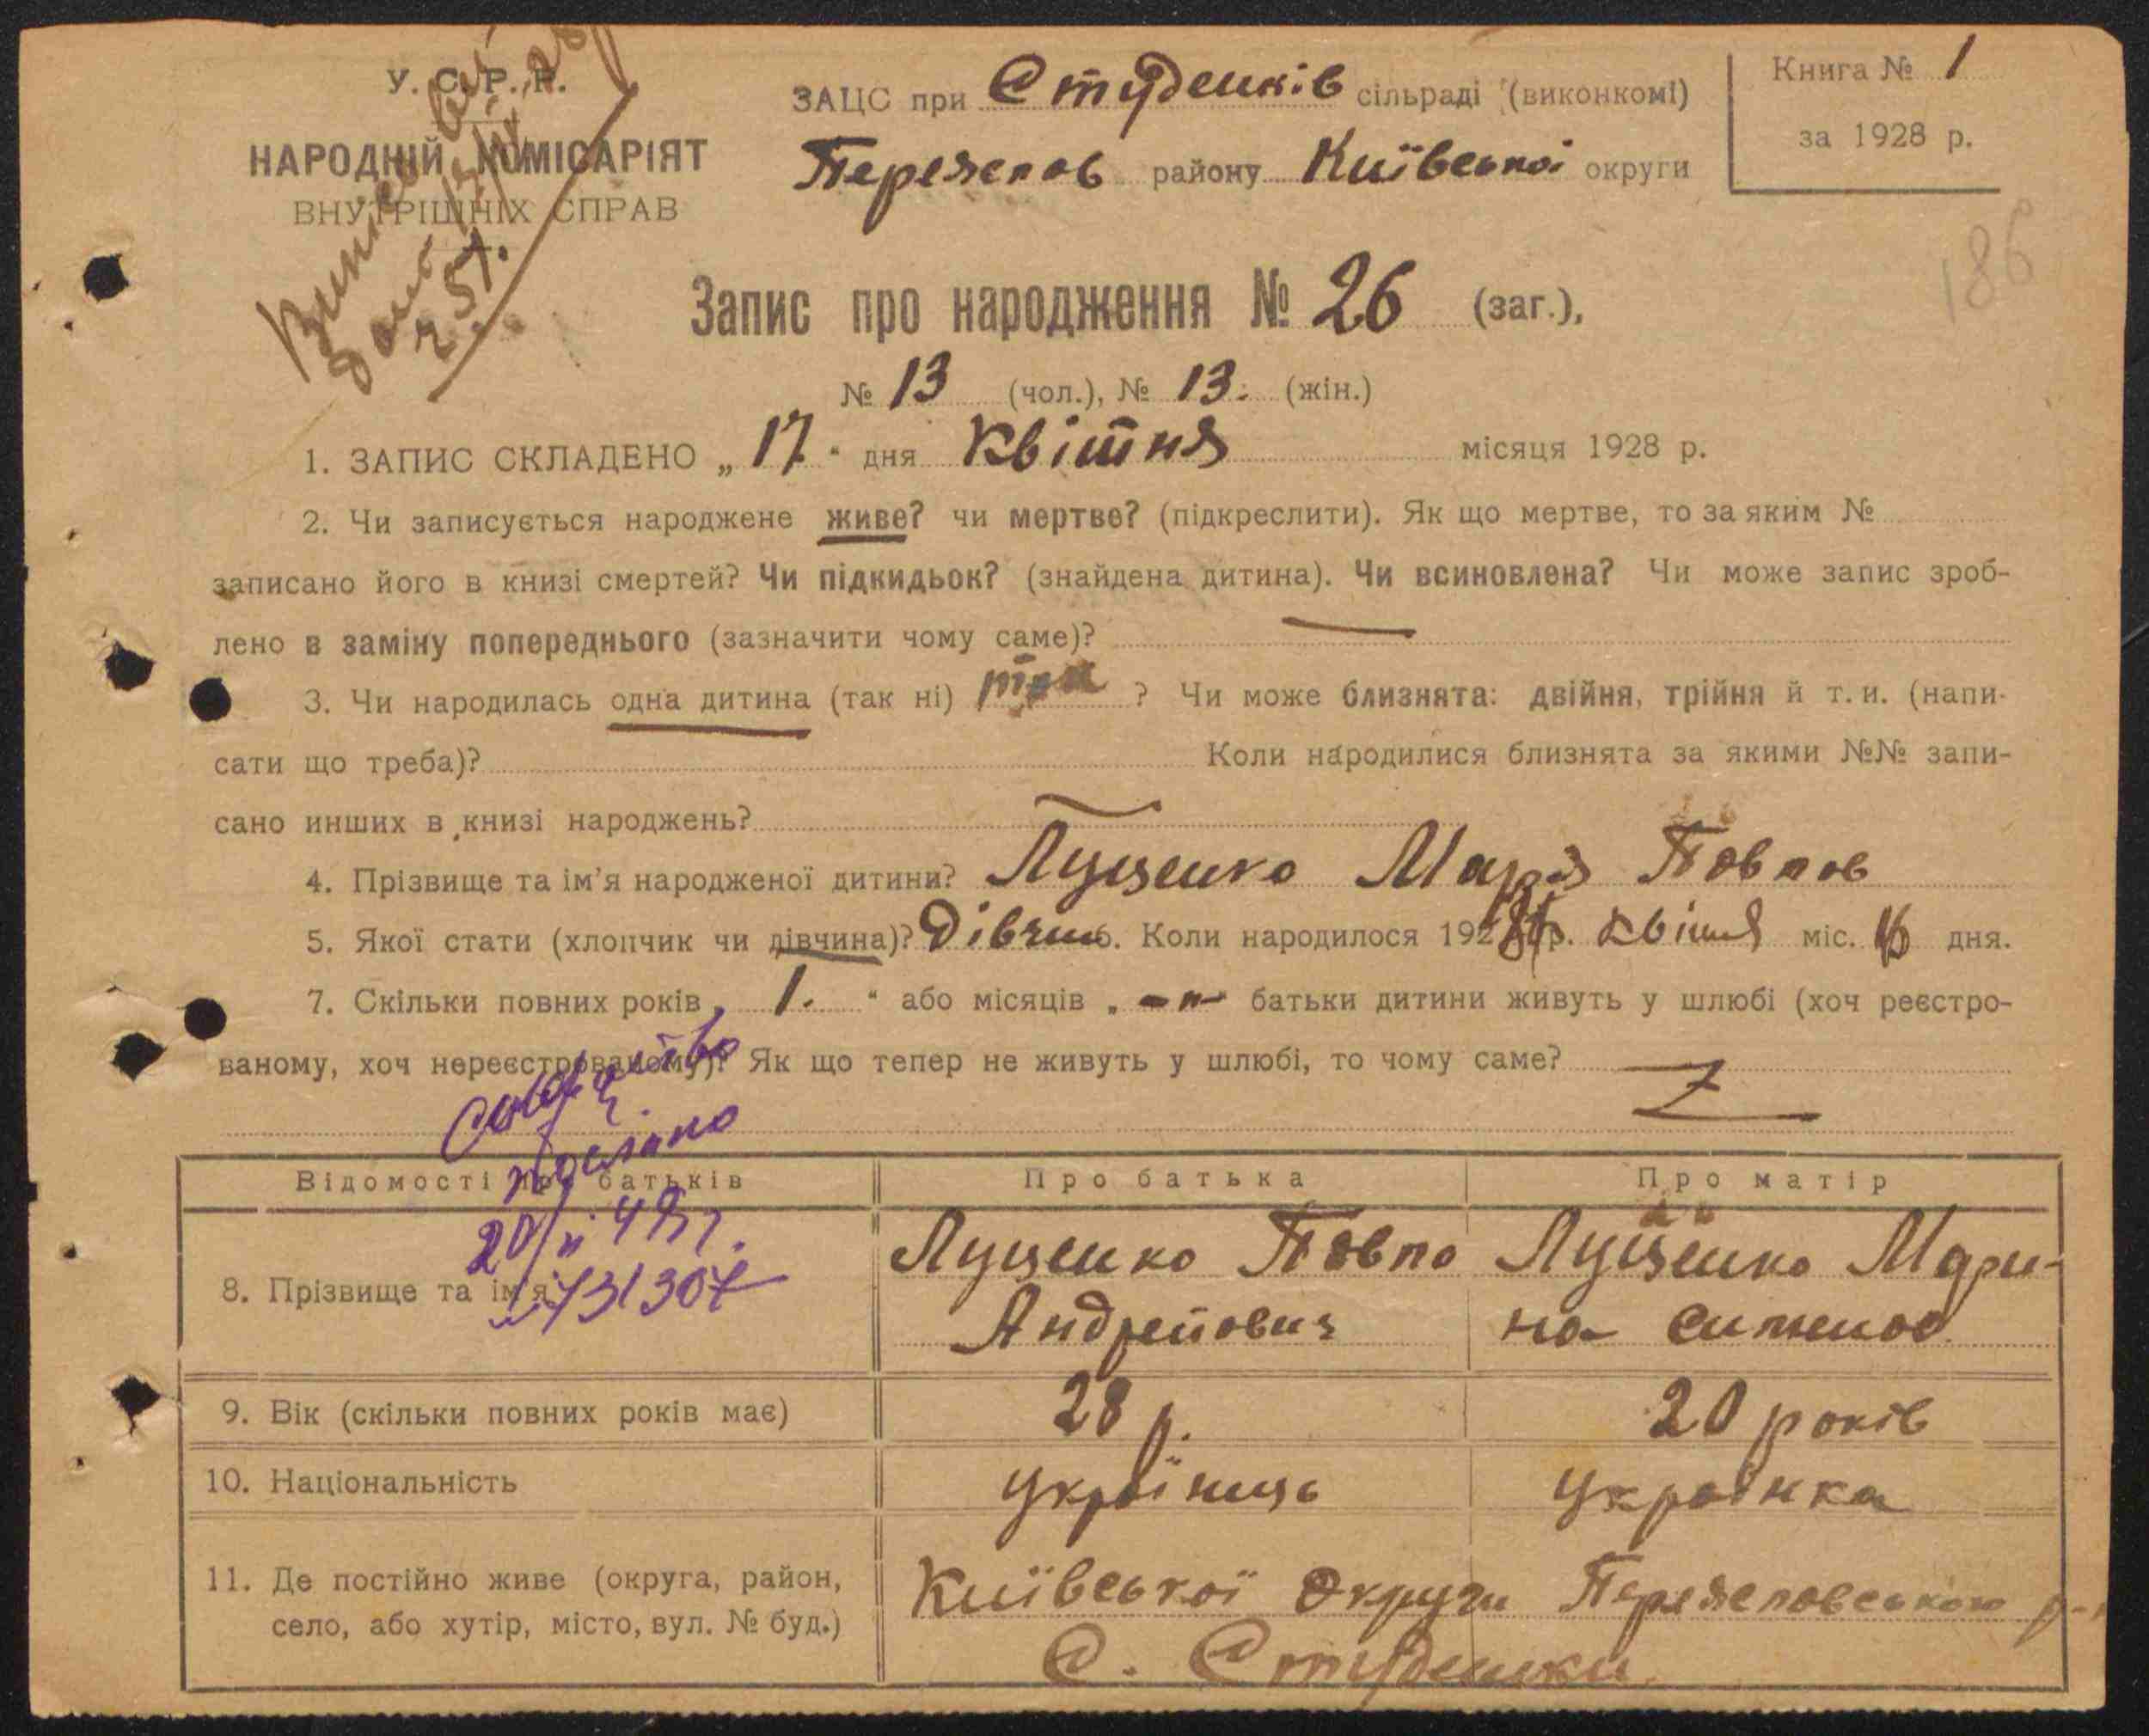 У. С. Р. Р.
НАРОДНІЙ КОМІСАРІЯТ
ВНУТРІШНІХ СПРАВ
ЗАЦС при Студеньків сільраді (виконкомі)
Переяслов району Київської округи
Книга № 1
за 1928 р.
186
Запис про народження № 26 (заг.),
№ 13 (чол.), № 13. (жін.)
1. ЗАПИС СКЛАДЕНО „ 17 “ дня Квітня місяця 1928 р.
2. Чи записується народжене живе? чи мертве? (підкреслити). Як що мертве, то за яким №
записано його в книзі смертей? Чи підкидьок? (знайдена дитина). Чи всиновлена? Чи може запис зроб-
лено в заміну попереднього (зазначити чому саме)?
3. Чи народилась одна дитина (так ні) ? Чи може близнята: двійня, трійня й т. и. (напи-
сати що треба)? Коли народилися близнята за якими №№ запи-
сано инших в книзі народжень?
4. Прізвище та ім'я народженої дитини? Луценко Марія Павлов
5. Якої стати (хлопчик чи дівчина)? Дівчина. Коли народилося 1928 р. квітня міс. 16 дня.
7. Скільки повних років „ 1. “ або місяців „ –"– батьки дитини живуть у шлюбі (хоч реєстро-
ваному, хоч нереєстрованому)? Як що тепер не живуть у шлюбі, то чому саме? Z
послано
Відомості про батьків Про батька Про матір
8. Прізвище та ім'я Луценко Павло Луценко Мари-
Андрейович на
9. Вік (скільки повних років має) 28 р. 20 років
10. Національність українць українка
11. Де постійно живе (округа, район, Київської округи Переясловського р-н
село, або хутір, місто, вул. № буд.) С. Студеньки